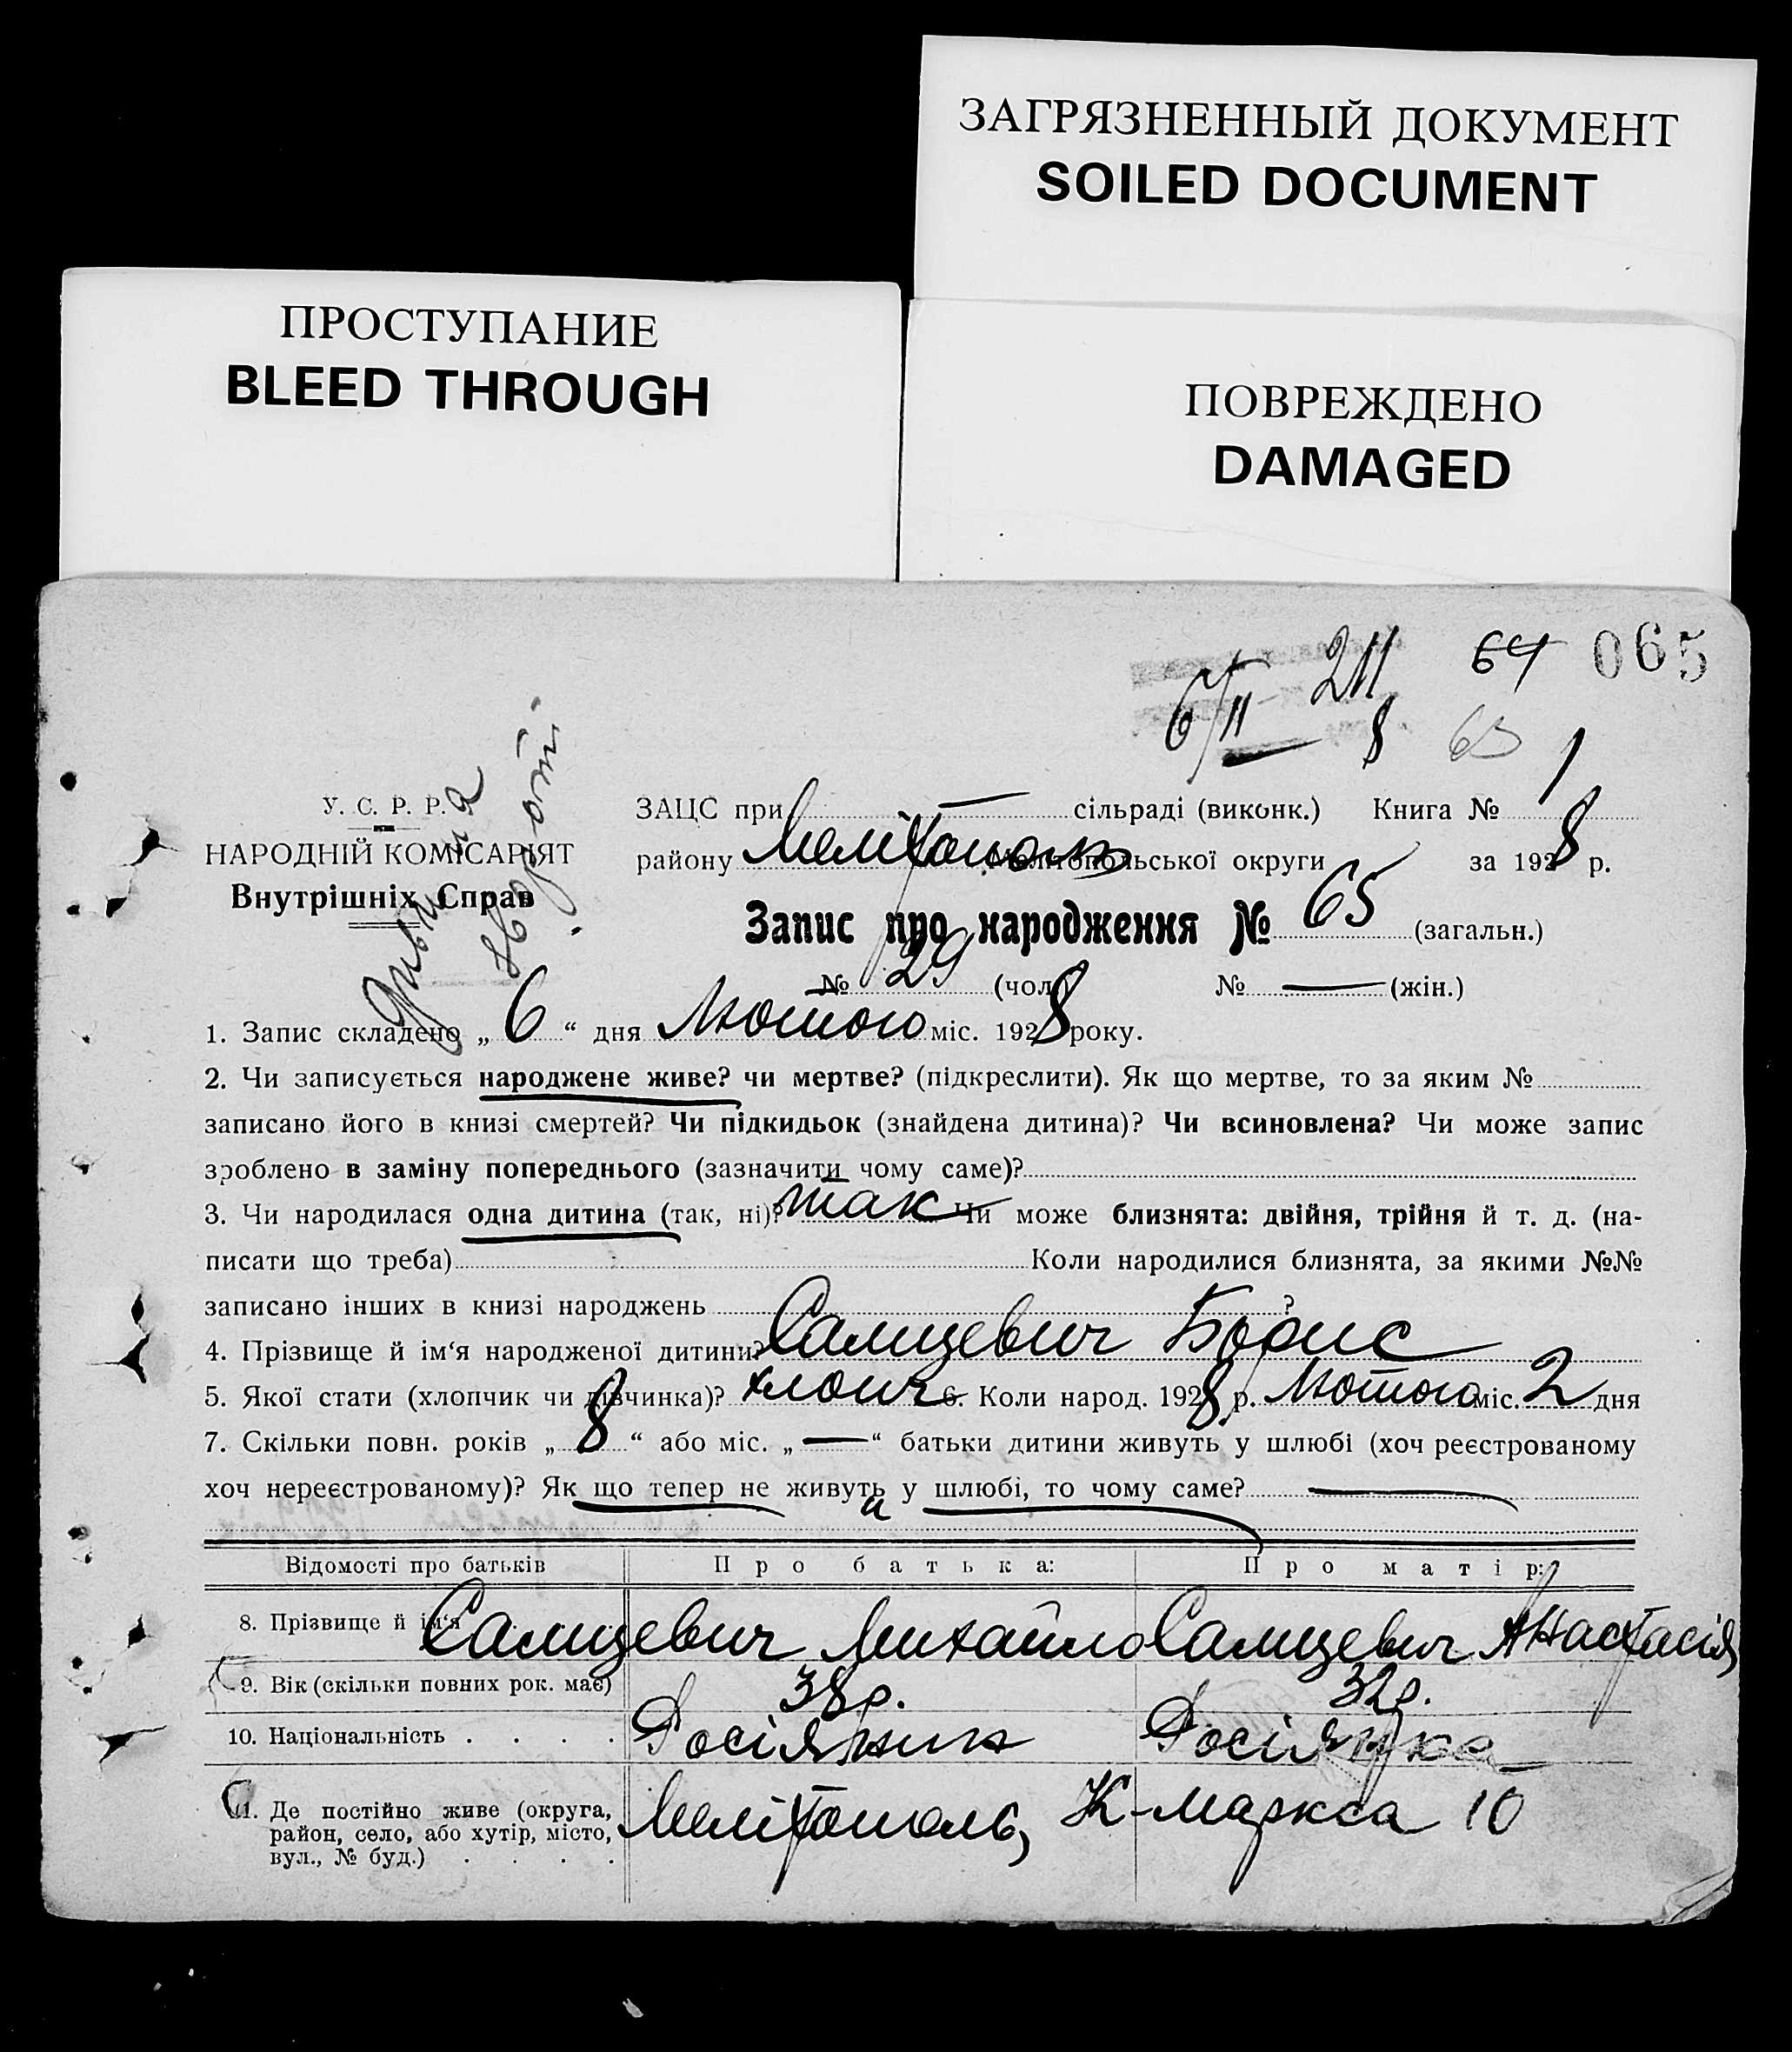 ЗАГРЯЗНЕННЫЙ ДОКУМЕНТ
SOILED DOCUMENT
ПРОСТУПАНИЕ
BLEED THROUGH
ПОВРЕЖДЕНО
DAMAGED
6/II 2II 64 065
8 65
У. С. Р. Р.
НАРОДНІЙ КОМІСАРІЯТ
Внутрішніх Справ
Дивися
звороті
ЗАЦС при — сільраді (виконк.) Книга № 1
району Мелітополь Мелітопольської округи за 1928 р.
Запис про народження № 65 (загальн.)
№ 29 (чол.) № — (жін.)
1. Запис складено „ 6 “ дня Лютого міс. 1928 року.
2. Чи записується народжене живе? чи мертве? (підкреслити). Як що мертве, то за яким №
записано його в книзі смертей? Чи підкидьок (знайдена дитина)? Чи всиновлена? Чи може запис
зроблено в заміну попереднього (зазначити чому саме)?
3. Чи народилася одна дитина (так, ні)? так Чи може близнята: двійня, трійня й т. д. (на-
писати що треба) Коли народилися близнята, за якими №№
записано інших в книзі народжень ?
4. Прізвище й ім‘я народженої дитини? Самцевич Борис
5. Якої стати (хлопчик чи дівчинка)? хлопч 6. Коли народ. 1928 р. Лютого міс. 2 дня
7. Скільки повн. років „ 8 “ або міс. „ — “ батьки дитини живуть у шлюбі (хоч реєстрованому
хоч нереєстрованому)? Як що тепер не живуть у шлюбі, то чому саме? —
Відомості про батьків Про батька: Про матір:
8. Прізвище й ім‘я Самцевич Михайло Самцевич Анастасія
9. Вік (скільки повних рок. має) 38р. 32р.
10. Національність . . . . Росіянин Росіянка
11. Де постійно живе (округа, район, село, або хутір, місто, вул., № буд.) . . . . Мелітополь, К-Маркса 10